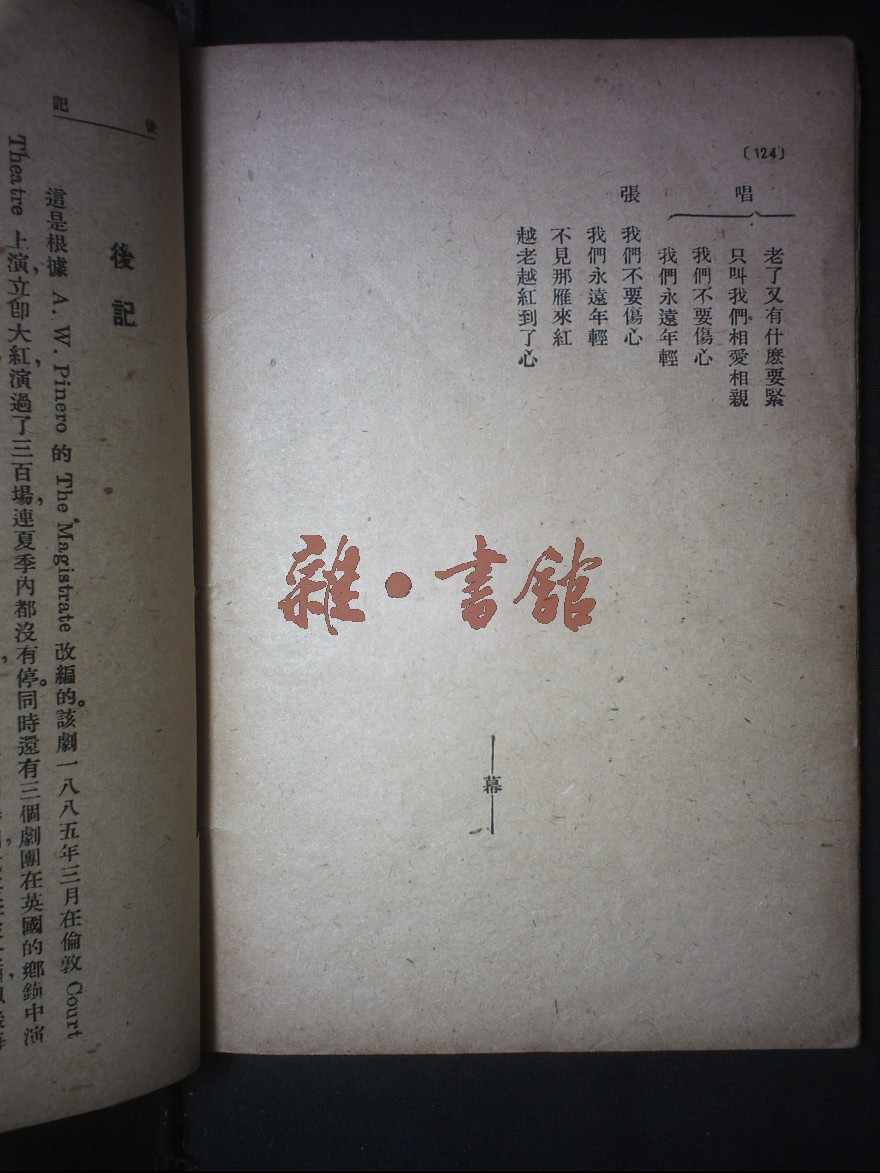 〔124〕
唱
老了又有什麽要緊
只叫我們相愛相親
我們不要傷心
我們永遠年輕
張
我們不要傷心
我們永遠年輕
不見那雁來紅
越老越紅到了心
幕
雜•書館
後記
後記
這是根據 A. W. Pinero 的 The Magistrate 改編的。該劇一八八五年三月在倫敦 Court
Theatre 上演,立卽大紅,演過了三百場,連夏季內都沒有停。同時還有三個劇團,在英國的鄉鎮中,演